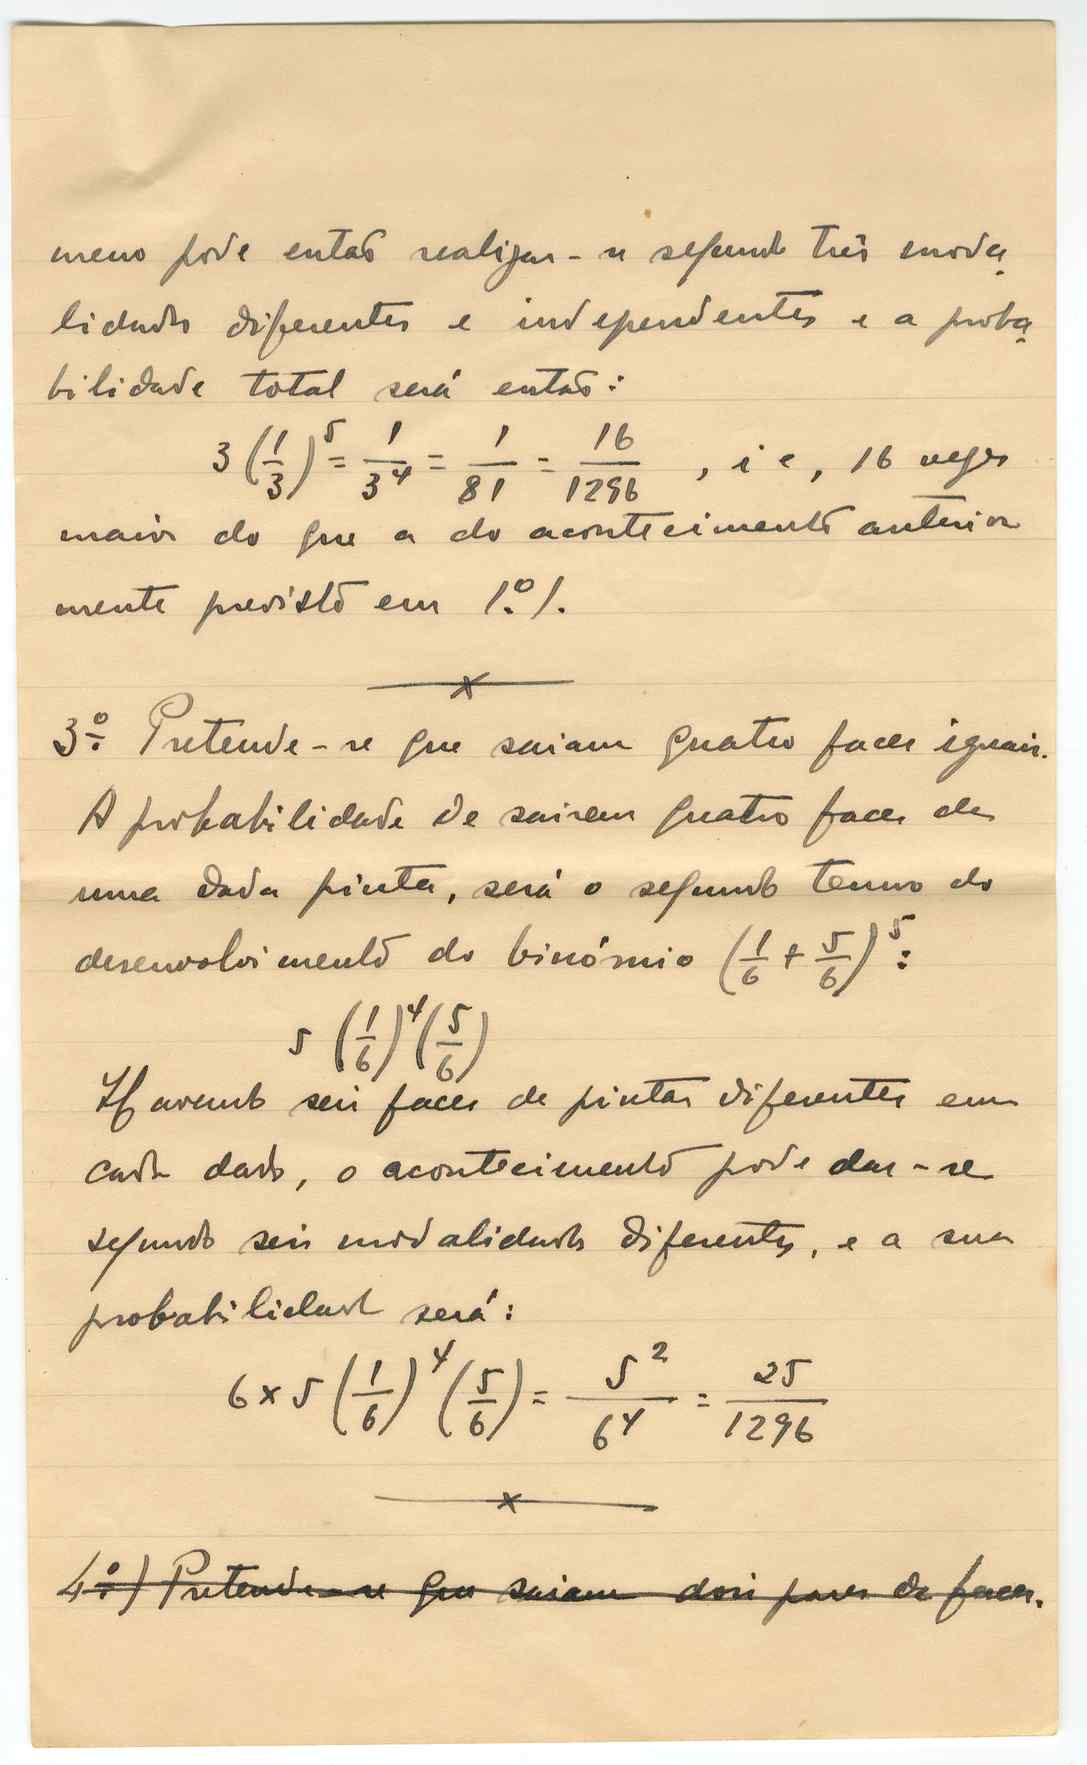 meno pode então realizar-se segundo três moda
lidades diferentes e independentes e a proba
bilidade total será então:
3 (1/3)^5 = 1/3^4 = 1/81 = 16/1296 , i e, 16 vezes
maior do que a do acontecimento anterior
mente previsto em 1º).
x
3º. Pretende-se que saiam quatro faces iguais.
A probabilidade de sairem quatro faces de
uma dada pinta, será o segundo termo do
desenvolvimento do binómio (1/6 + 5/6)^5:
5 (1/6)^4 (5/6)
Havendo seis faces de pintas diferentes em
cada dado, o acontecimento pode dar-se
segundo seis modalidades diferentes, e a sua
probabilidade será:
6 x 5 (1/6)^4 (5/6) = 5^2/6^4 = 25/1296
x
4º) Pretende-se que saiam dois pares de faces.